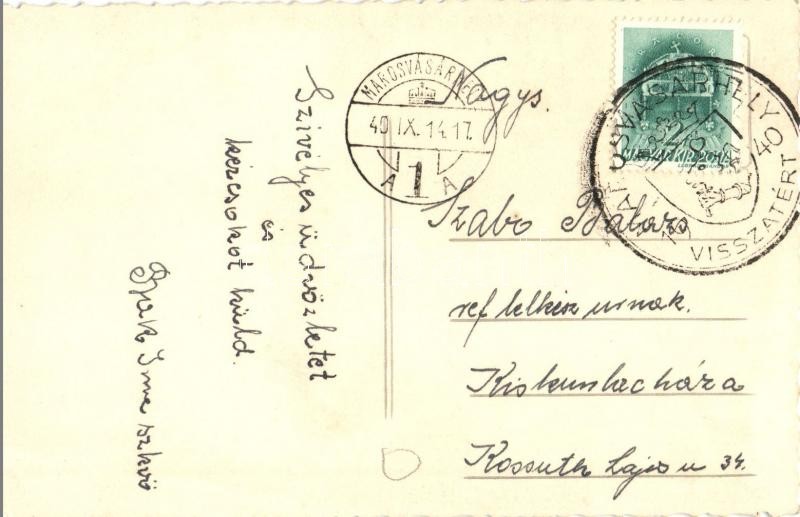 Szivélyes üdvözletet
és
kézcsokot küld.
Imre
MAROSVÁSÁRHELY
40 IX. 14. 17.
A 1 A
MAROSVÁSÁRHELY
VISSZATÉRT
MAGYAR KIR. POSTA
Nagys.
Szabó Balázs
ref lelkész urnak.
Kiskunlacháza
Kossuth Lajos u 34.